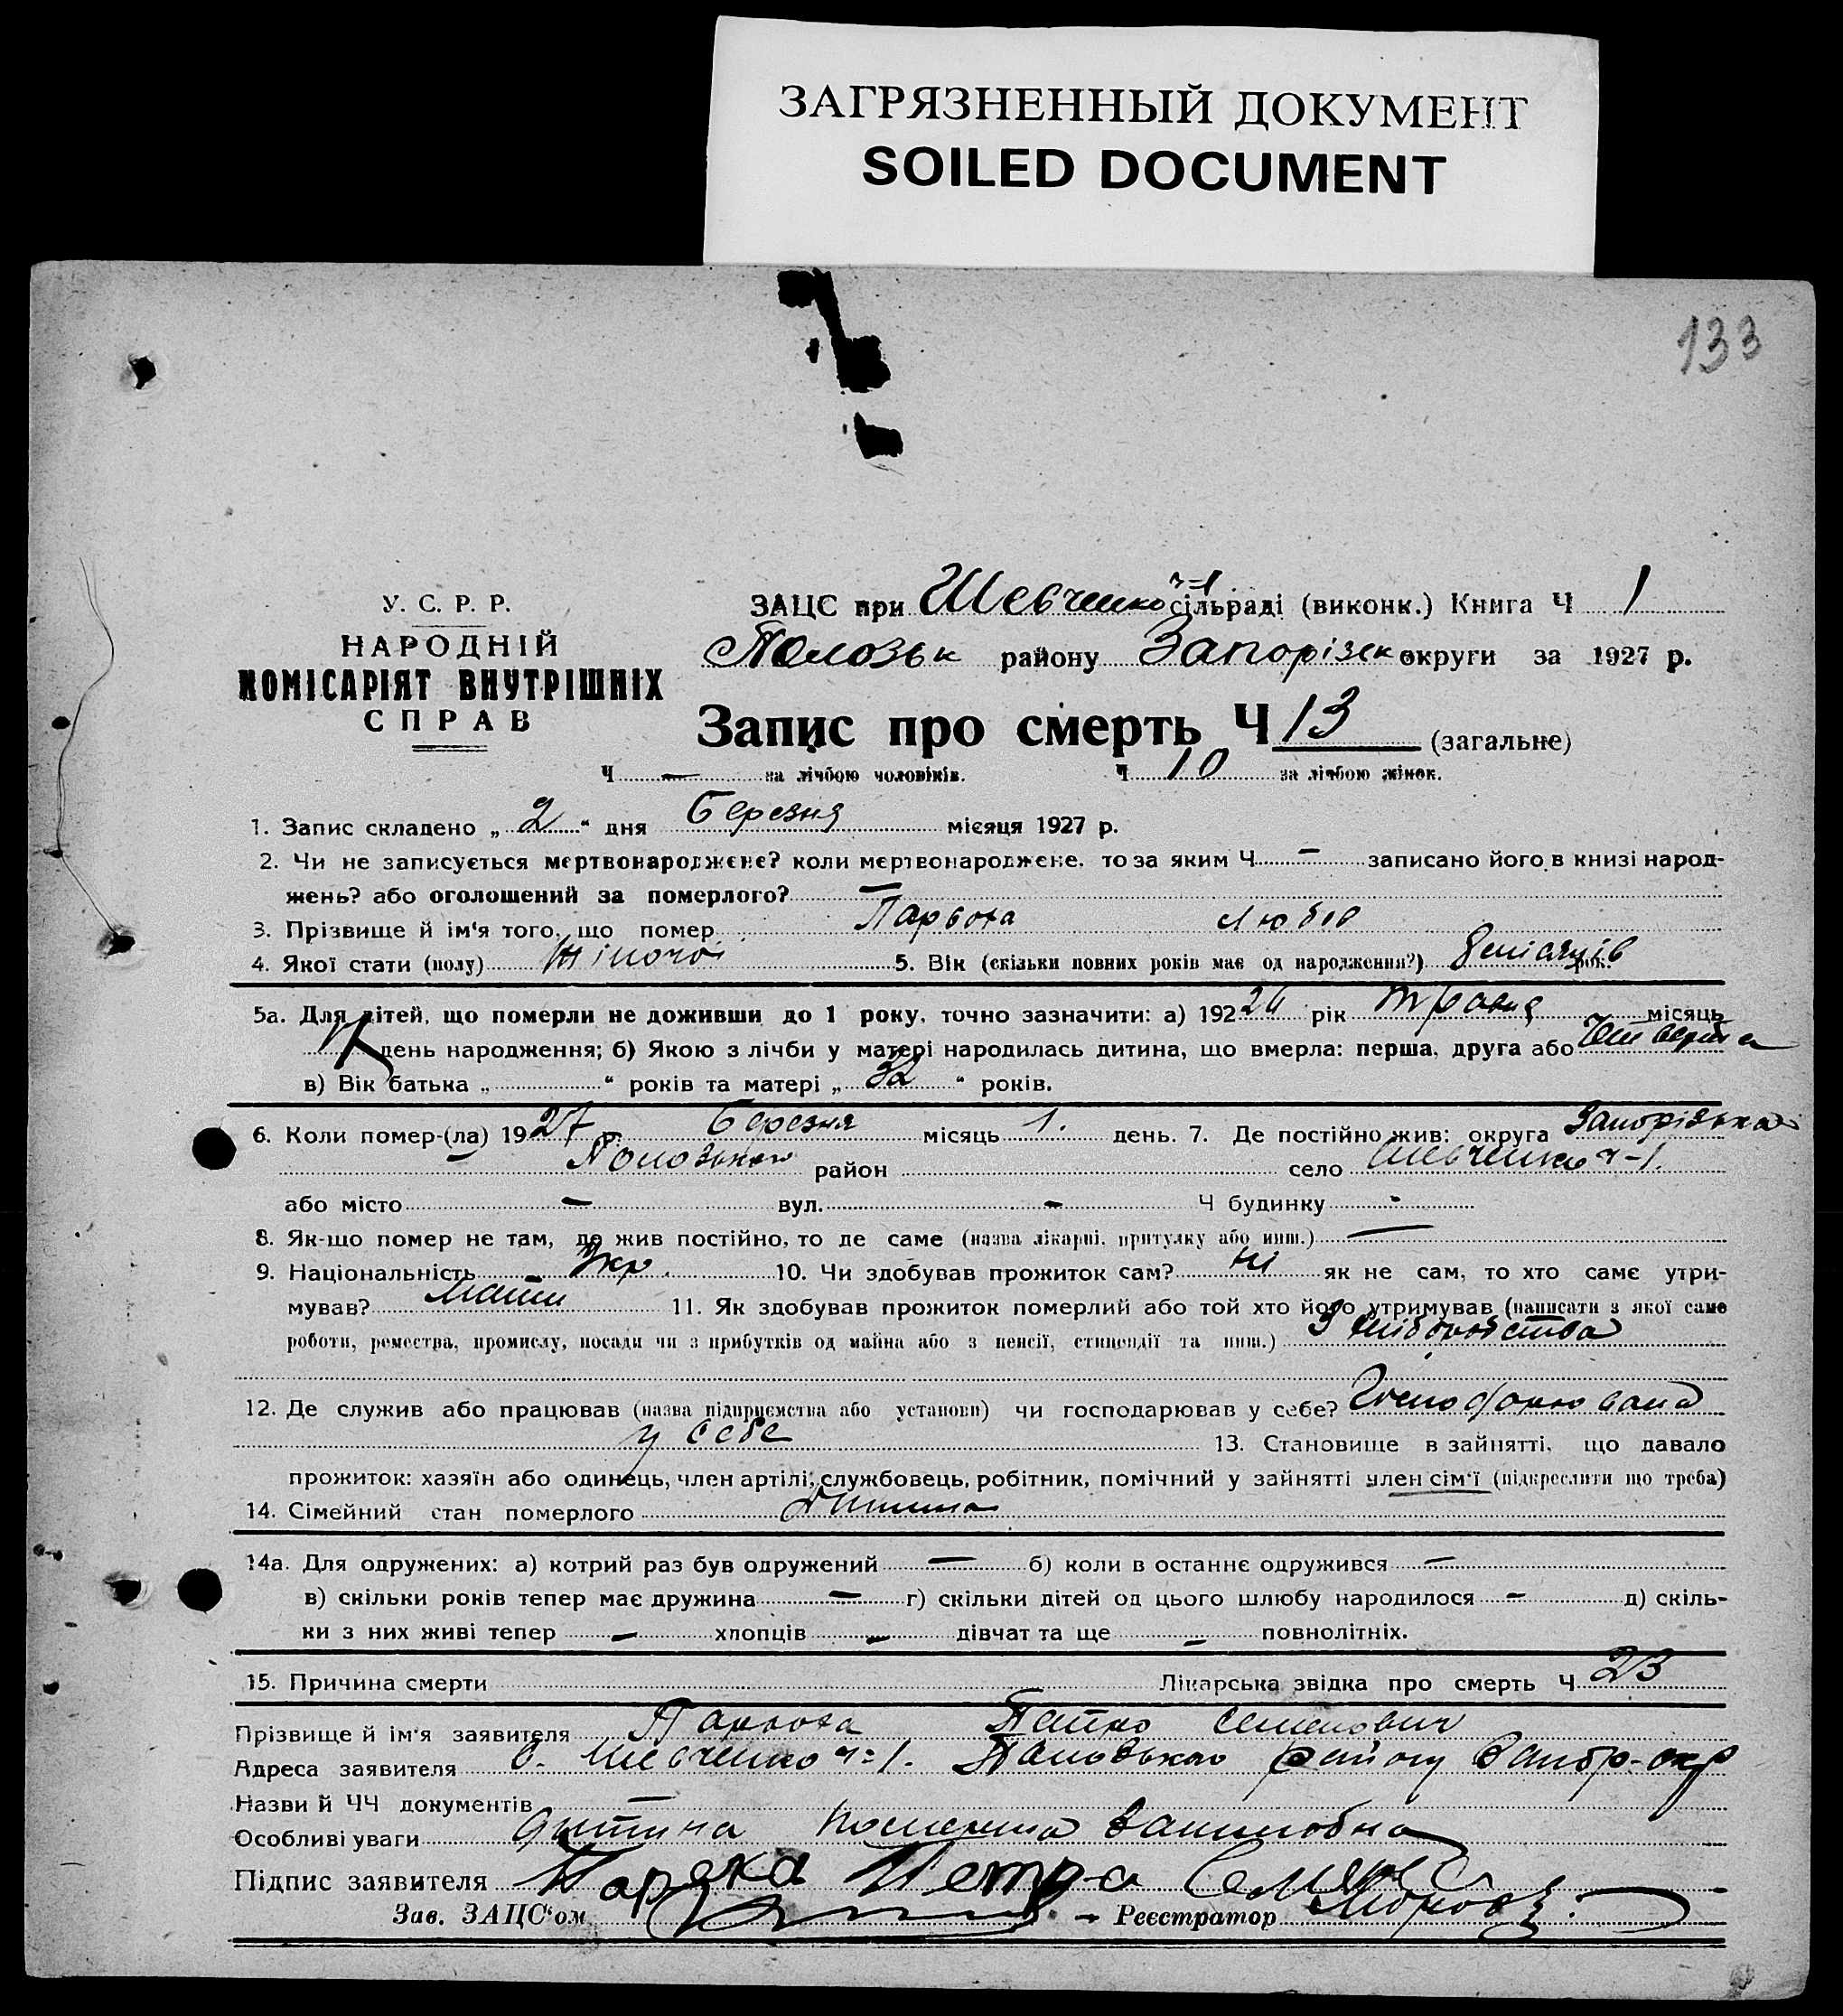 ЗАГРЯЗНЕННЫЙ ДОКУМЕНТ
SOILED DOCUMENT
133
У. С. Р. Р.
НАРОДНІЙ
КОМІСАРІЯТ ВНУТРІШНІХ
СПРАВ
ЗАЦС при Шевченко ч=1 сільраді (виконк.) Книга Ч 1
Полозьк району Запорізьк округи за 1927 р.
Запис про смерть Ч 13 (загальне)
Ч — за лічбою чоловіків. Ч 10 за лічбою жінок.
1. Запис складено „ 2 “ дня Березня місяця 1927 р.
2. Чи не записується мертвонароджене? коли мертвонароджене, то за яким Ч – записано його в книзі народ-
жень? або оголошений за померлого? —
3. Прізвище й ім‘я того, що помер Любов
4. Якої стати (полу) Жіночої 5. Вік (скільки повних років має од народження?) 8 місяців рок.
5а. Для дітей, що померли не доживши до 1 року, точно зазначити: а) 192 26 рік травня місяць
день народження; б) Якою з лічби у матері народилась дитина, що вмерла: перша, друга або Четверта
в) Вік батька „ “ років та матері „ 32 “ років.
6. Коли помер-(ла) 19 27 р. Березня місяць 1. день. 7. Де постійно жив: округа Запорізька
Полозьком район село Шевченко ч-1.
або місто – вул. – Ч будинку -
8. Як-що помер не там, де жив постійно, то де саме (назва лікарні, притулку або инш.) —
9. Національність Укр. 10. Чи здобував прожиток сам? ні як не сам, то хто саме утри-
мував? Мати 11. Як здобував прожиток померлий або той хто його утримував (написати з якої саме
роботи, ремества, промислу, посади чи з прибутків од майна або з пенсії, стипендії та инш.) З хліборобства
12. Де служив або працював (назва підприємства або установи) чи господарював у себе? Господарювала
у себе 13. Становище в зайнятті, що давало
прожиток: хазяїн або одинець, член артілі, службовець, робітник, помічний у зайнятті член сім‘ї (підкреслити що треба)
14. Сімейний стан померлого Дитина
14а. Для одружених: а) котрий раз був одружений — б) коли в останнє одружився —
в) скільки років тепер має дружина — г) скільки дітей од цього шлюбу народилося – д) скіль-
ки з них живі тепер – хлопців – дівчат та ще – повнолітніх.
15. Причина смерти Лікарська звідка про смерть Ч 23
Прізвище й ім‘я заявителя Петро Семенович
Адреса заявителя с. Шевченко ч=1. Полозьково району Запор-окр
Назви й ЧЧ документів —
Особливі уваги дитина
Підпис заявителя Петро
Зав. ЗАЦС‘ом – Реєстратор